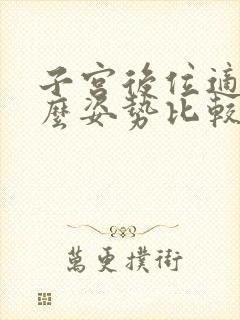 子宮後位適
麼姿勢比較
萬更撲街